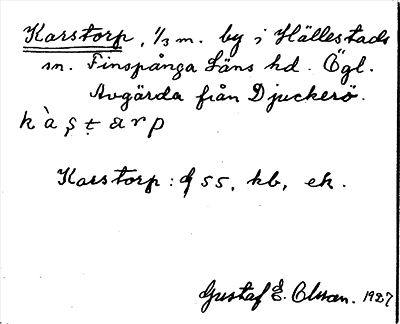 Karstorp, 1/3 m. by i Hällestads
sn. Finspånga Läns hd. Ögl.
Avgärda från Djuckerö.
k à ş ṭ a r p
Karstorp: 55, kb, ek.
Gustaf E. Olsson. 1927